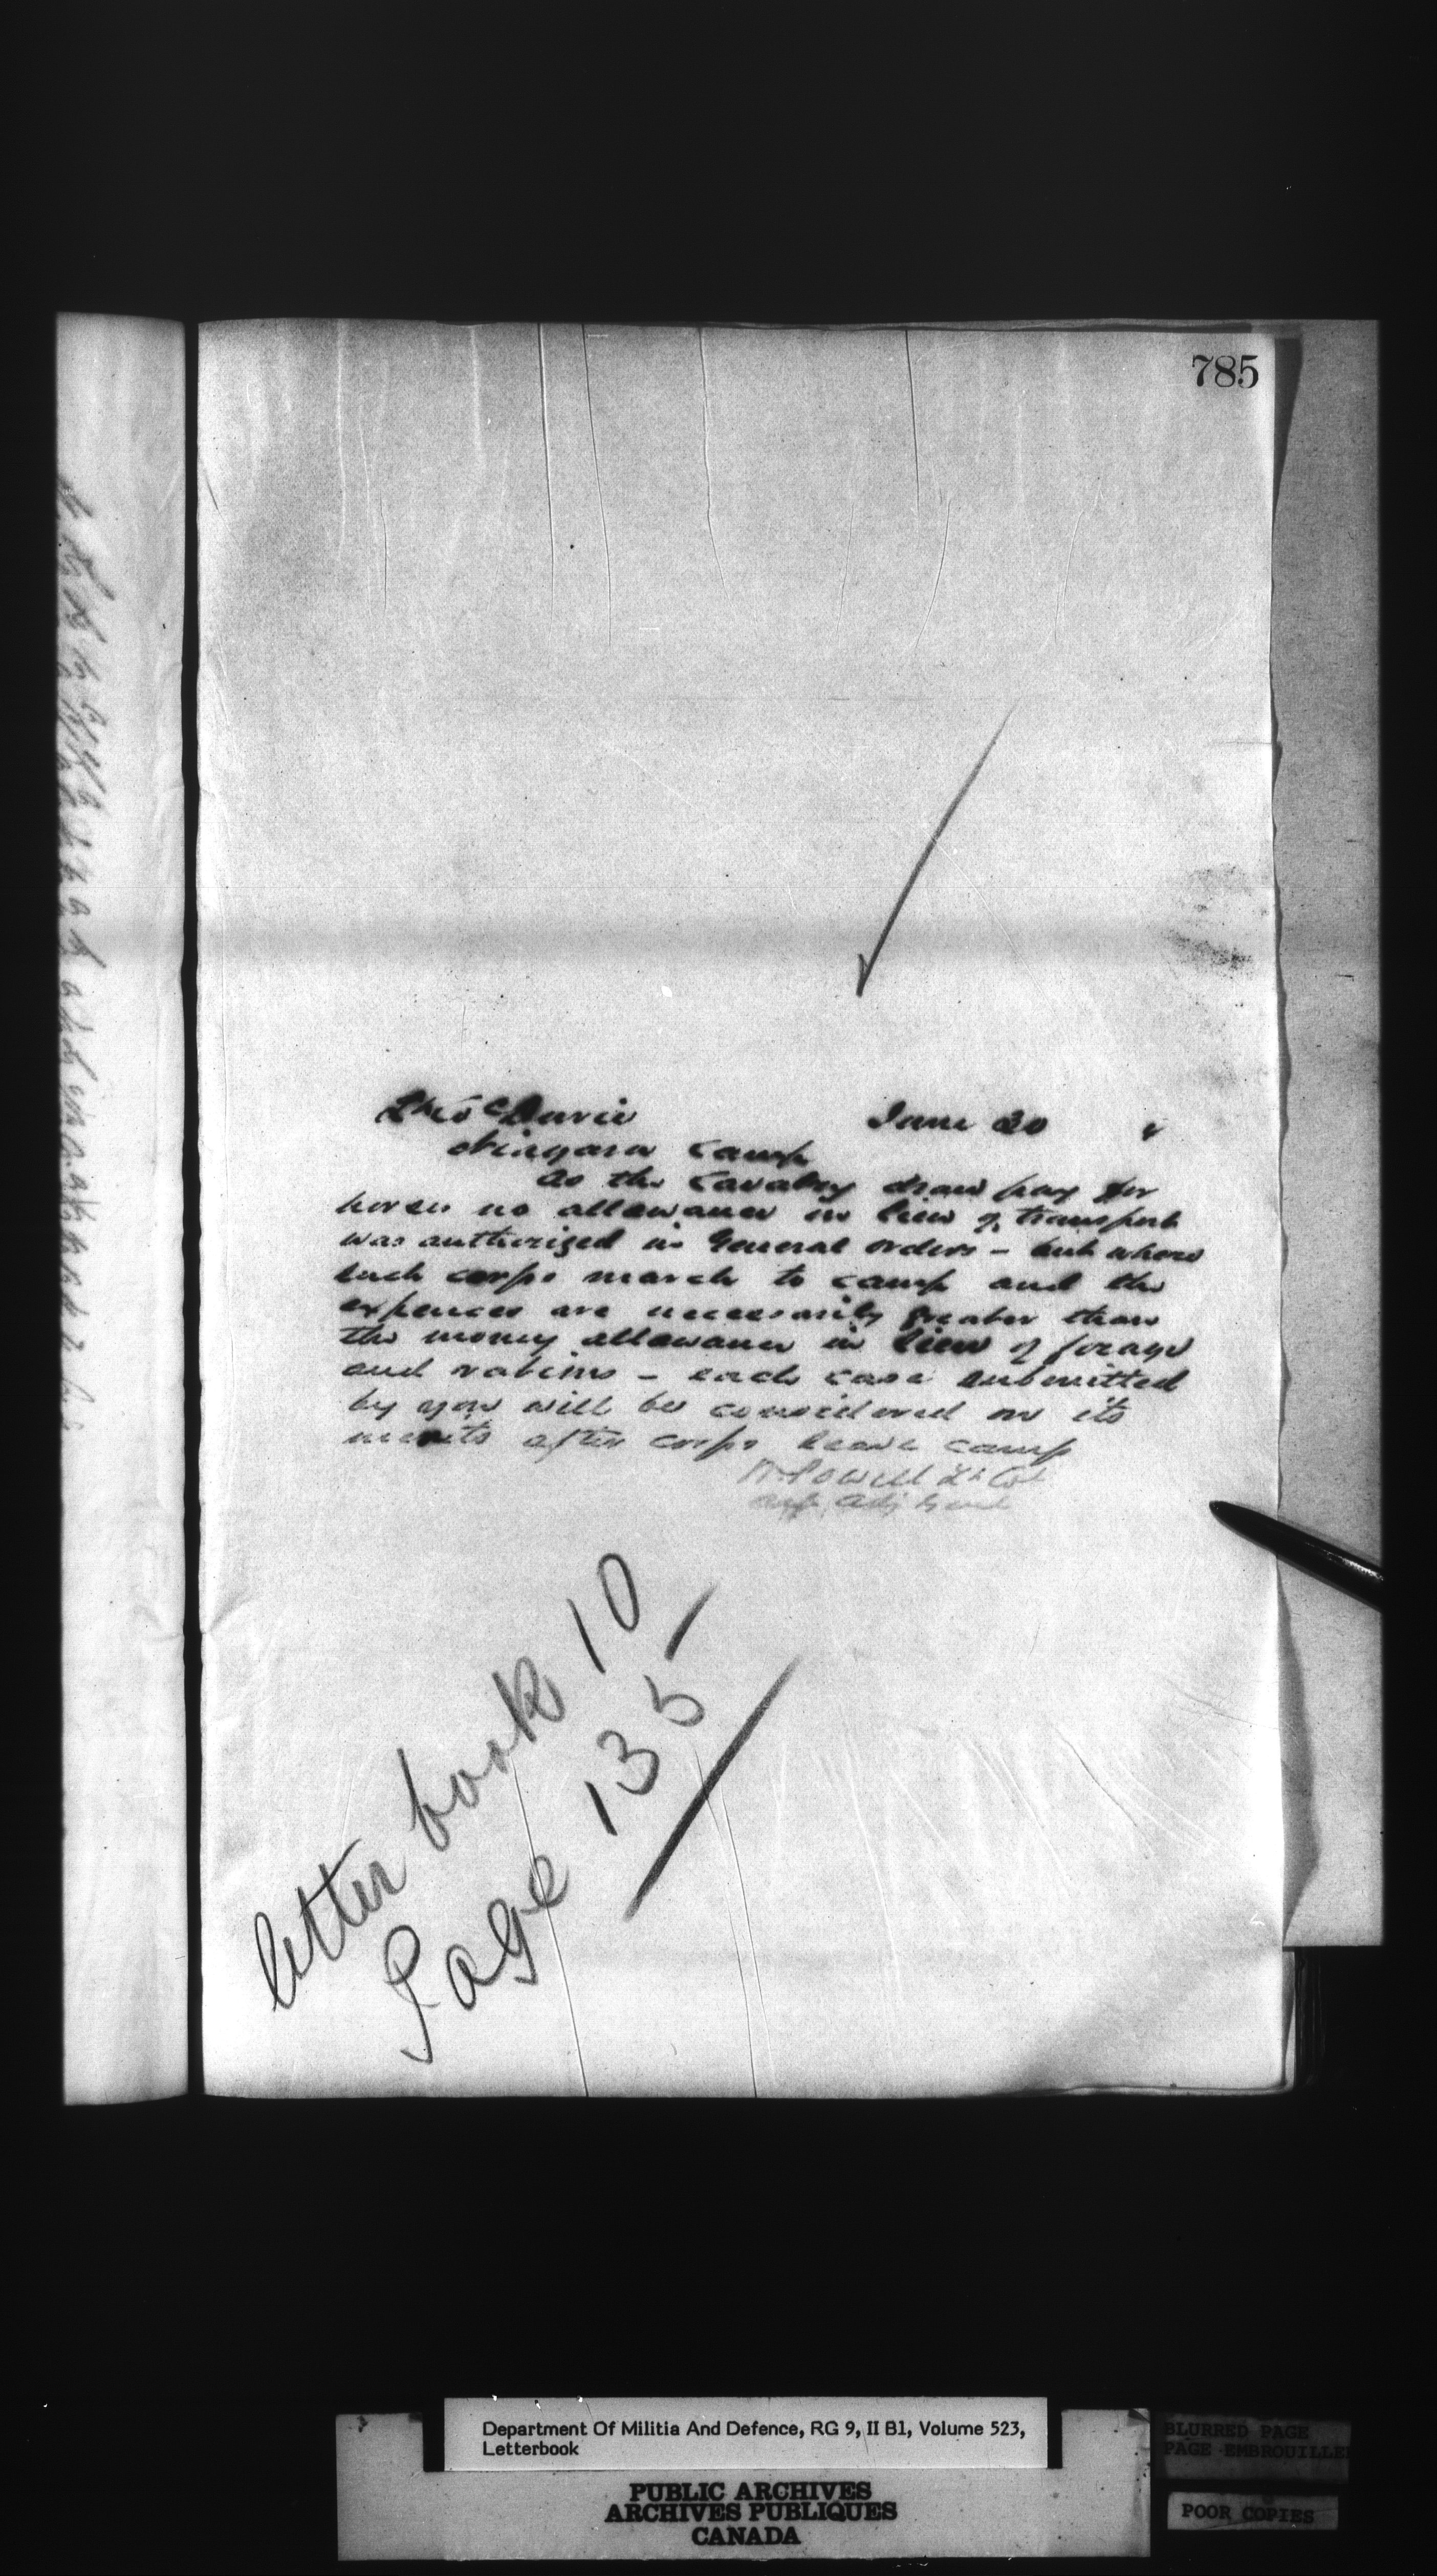 785
Durie June 20
Niagara Camp
As the Cavalry draw pay for
horses no allowance in lieu of transport
was authorized in General orders – but where
such corps march to camp and the
expences are necessarily greater than
the money allowance in lieu of forage
and rations – each case submitted
by you will be considered on its
merits after corps leave camp
W. Powell Lt Col
Adj Genl
letter book 10
Page 135
Department Of Militia And Defence, RG 9, II B1, Volume 523,
Letterbook
PUBLIC ARCHIVES
ARCHIVES PUBLIQUES
CANADA
BLURRED PAGE
PAGE EMBROUILLE
POOR COPIES